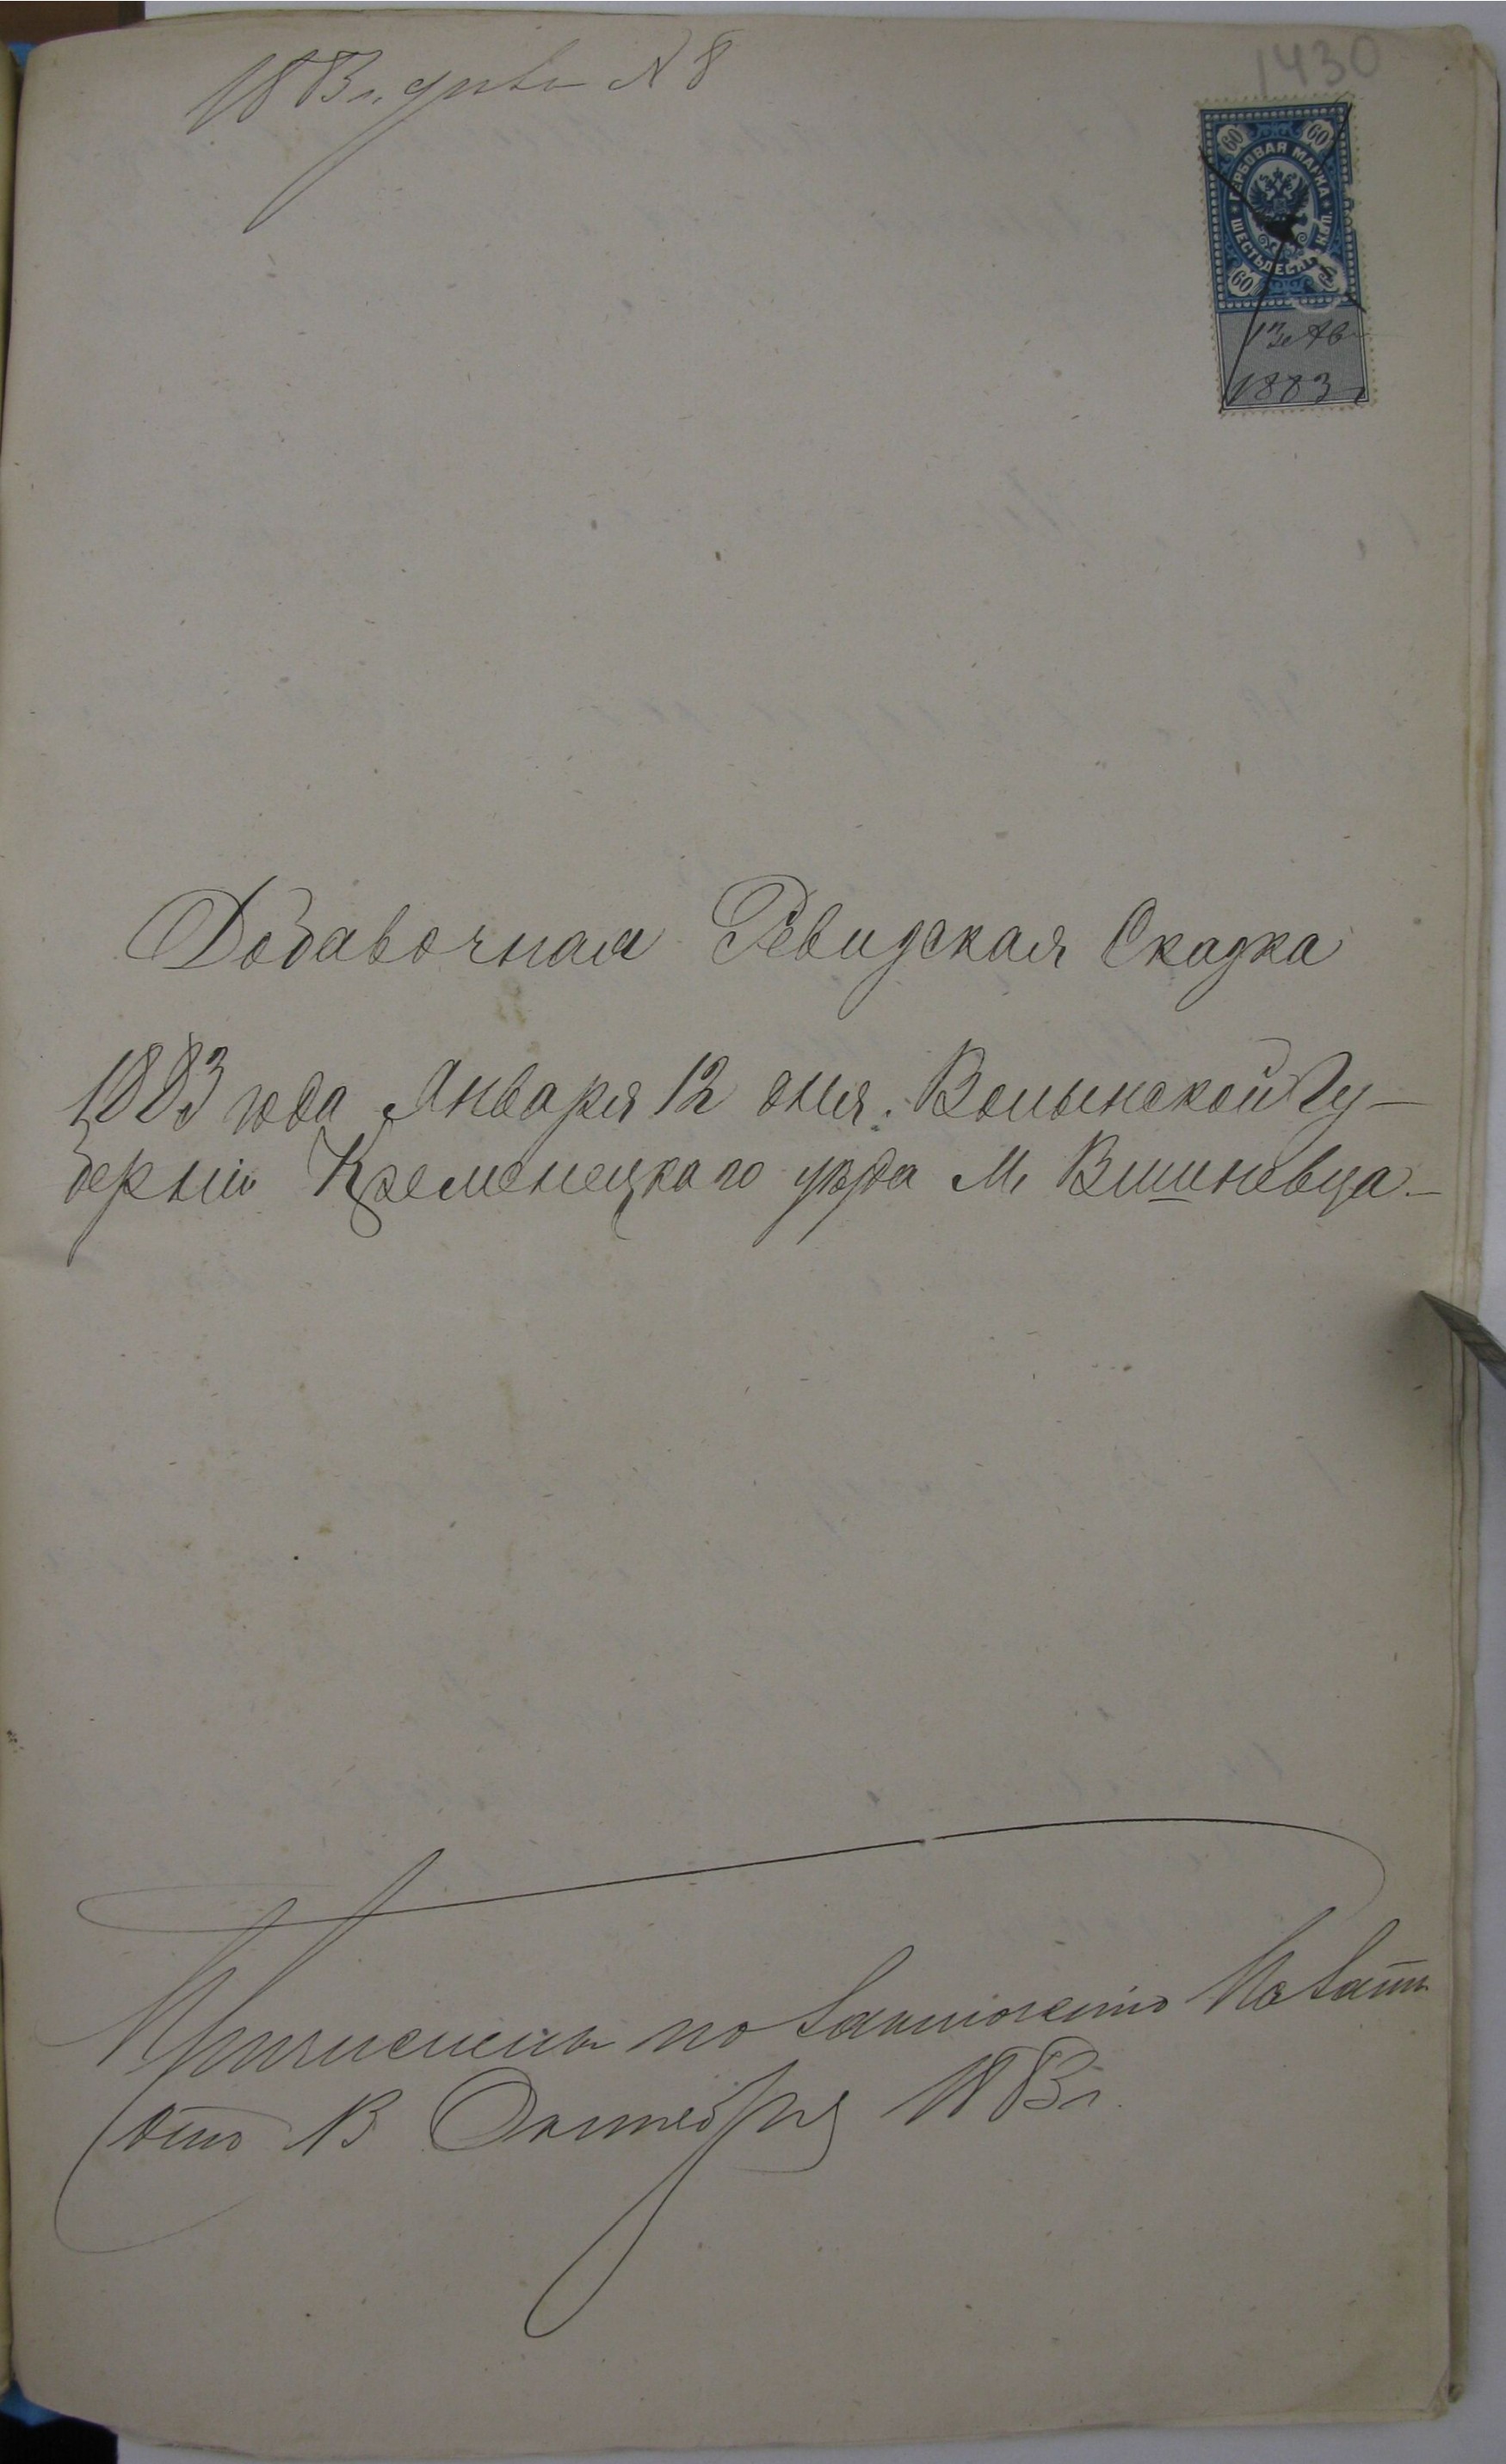 1883 г. № 8
1430
60 60
ГЕРБОВАЯ МАРКА
ШЕСТЬДЕСЯТЪ КОП.
60
1883 г
Добавочная Ревизская Сказка
1883 года Января 12 дня. Волынской Гу-
берніи Кременецкаго уѣзда М. Вишневца
Причислены по Палаты
отъ 13 Октября 1883 г.